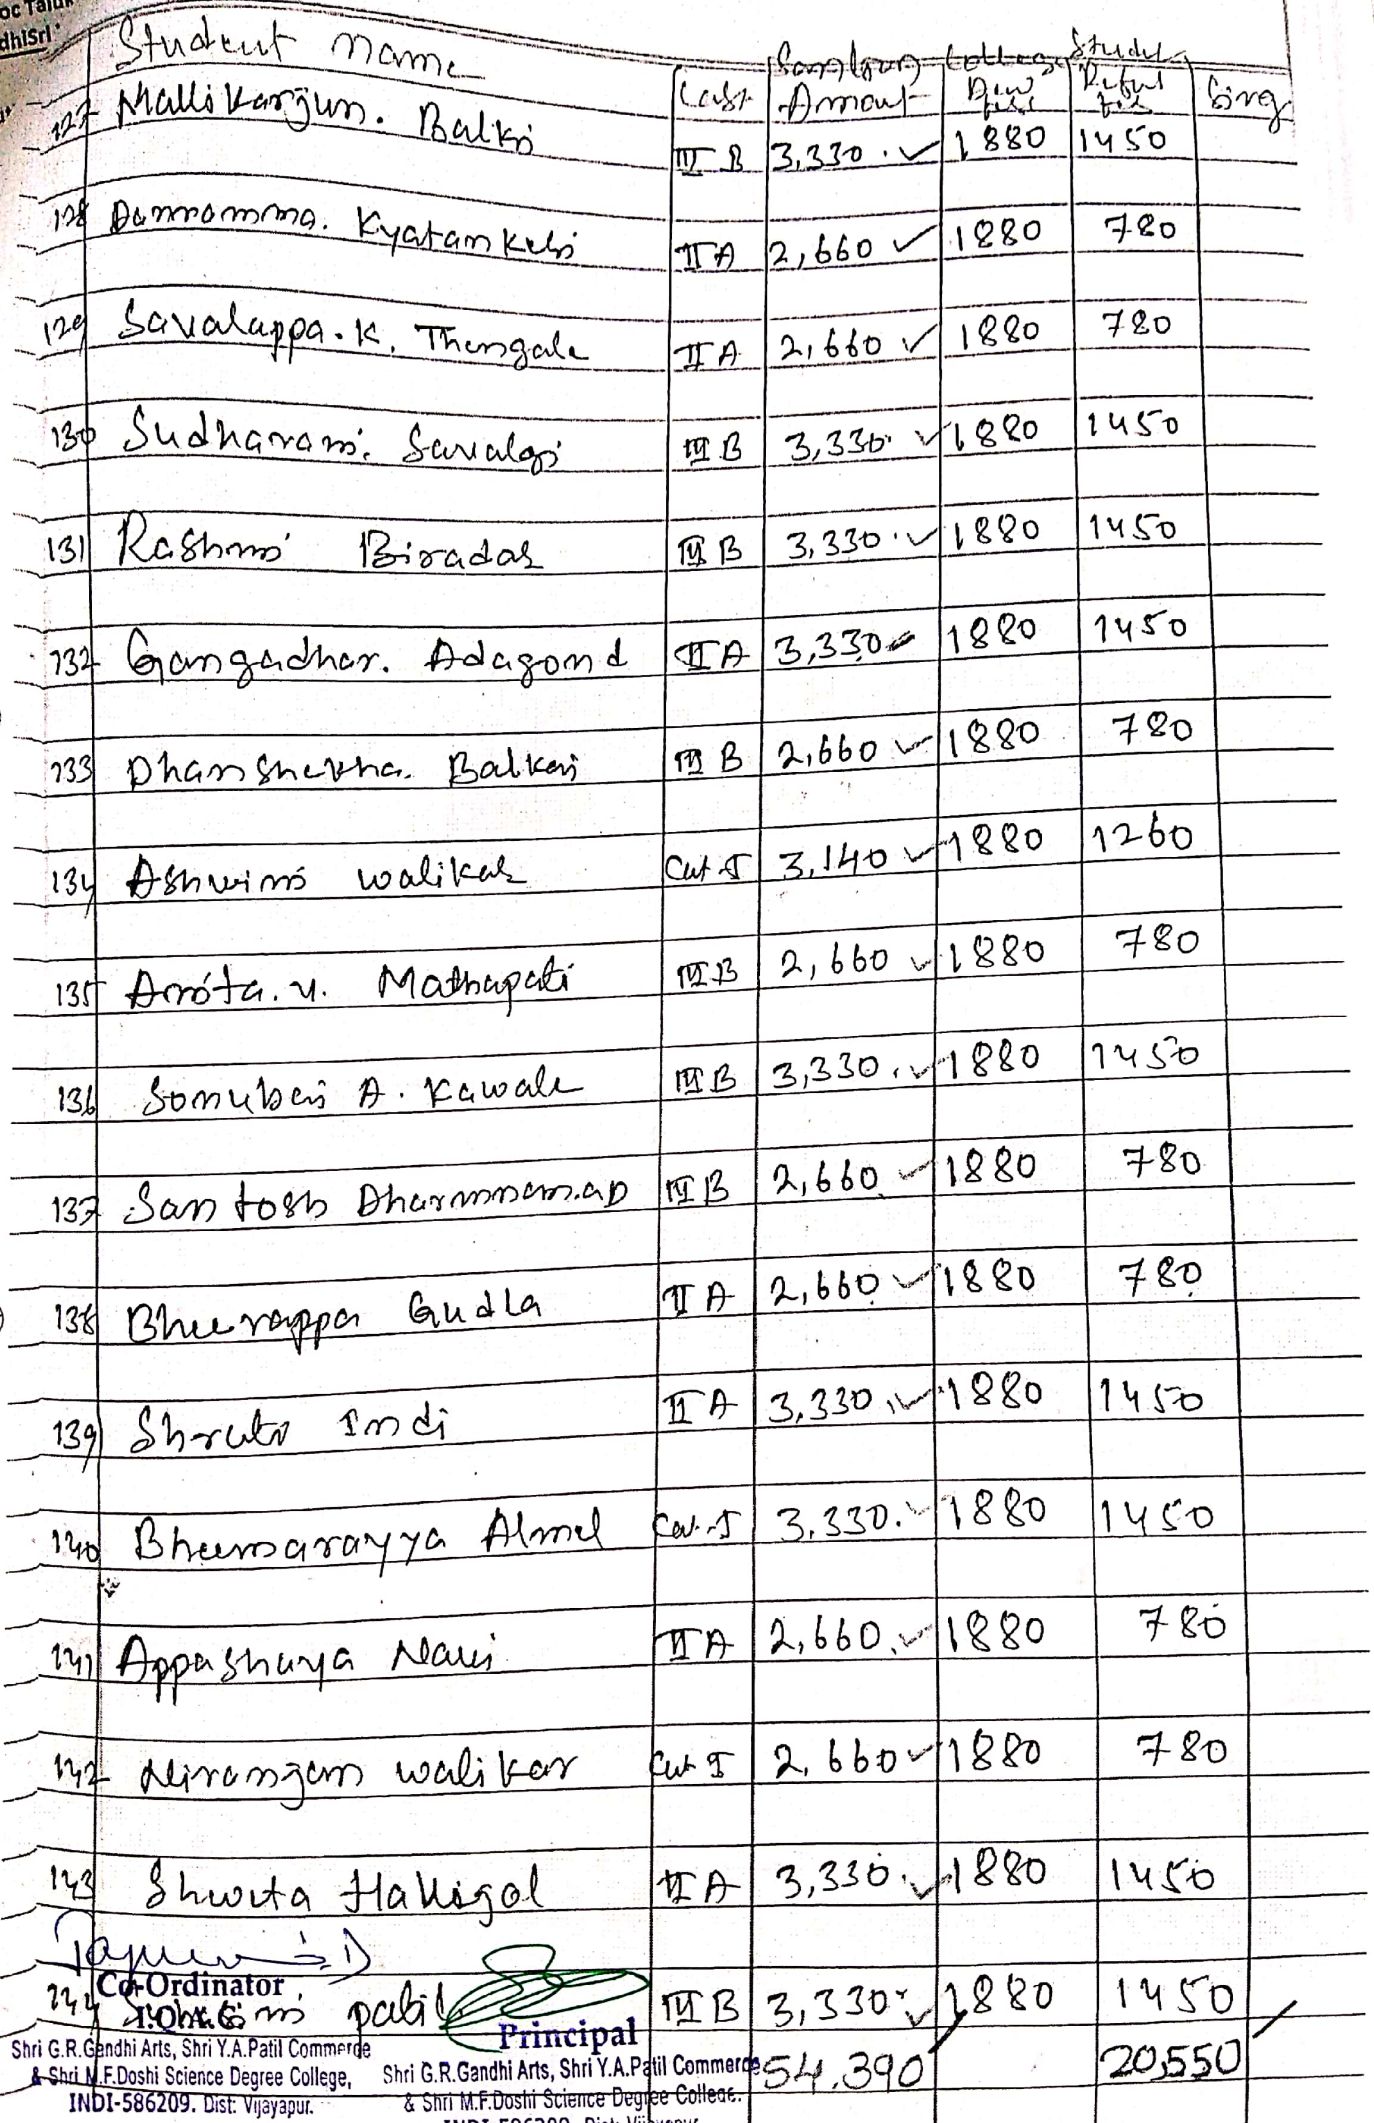 oc Taluk
dhisri
Student Name Cast Sanction Amount College Fees Student Refund Fees Sing
127 Mallikarjun. Balki III B 3,330 ✓ 1880 1450
128 Dannamma. Kyatankeri II A 2,660 ✓ 1880 780
129 Savalappa. K. Thengale II A 2,660 ✓ 1880 780
130 Sudharani. Savalgi III B 3,330 ✓ 1880 1450
131 Rashmi Biradar III B 3,330 ✓ 1880 1450
132 Gangadhar. Adagond II A 3,330 1880 1450
133 Dhanshekha. Balkai III B 2,660 ✓ 1880 780
134 Ashwini walikar Cat I 3,140 ✓ 1880 1260
135 Anita. M. Mathapati III B 2,660 ✓ 1880 780
136 Sonubai A. Kawale III B 3,330 ✓ 1880 1450
137 Santosh III B 2,660 ✓ 1880 780
138 Bheerappa Gudla II A 2,660 ✓ 1880 780
139 Shruti Indi II A 3,330 ✓ 1880 1450
140 Bheemarayya Almel Cat-I 3,330 ✓ 1880 1450
141 Appashaya Navi II A 2,660 ✓ 1880 780
142 Niranjan walikar Cat I 2,660 ✓ 1880 780
143 Shweta Halligol II A 3,330 ✓ 1880 1450
Co-Ordinator
144 patil III B 3,330 ✓ 1880 1450
I.Q.A.C
Principal
54,390 20,550
Shri G.R.Gandhi Arts, Shri Y.A.Patil Commerce
& Shri M.F.Doshi Science Degree College,
INDI-586209. Dist: Vijayapur.
Shri G.R.Gandhi Arts, Shri Y.A.Patil Commerce
& Shri M.F.Doshi Science Degree College.